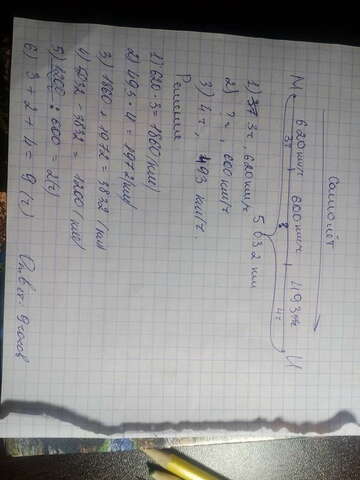 Самолёт
М 620км/ч 600км/ч 493км/ч И
3ч ? 4ч
5032 км
1) 3ч, 620 км/ч
2) ? ч, 600 км/ч
3) 4ч, 493 км/ч
Решение
1) 620 · 3 = 1860 (км)
2) 493 · 4 = 1972 (км)
3) 1860 + 1972 = 3832 (км)
4) 5032 - 3832 = 1200 (км)
5) 1200 : 600 = 2 (ч)
6) 3 + 2 + 4 = 9 (ч) Ответ: 9 часов